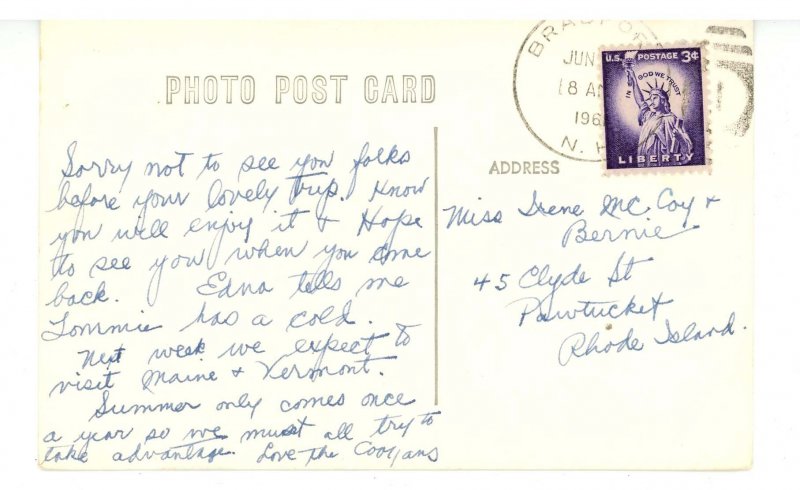 PHOTO POST CARD
BRADFOR
JUN
8 A
196
N. H
U.S. POSTAGE 3¢
IN GOD WE TRUST
LIBERTY
Sorry not to see you folks
before your lovely trip. Know
you will enjoy it & Hope
to see you when you come
back. Edna tells me
Tommie has a cold.
Next week we expect to
visit Maine & Vermont.
Summer only comes once
a year so we must all try to
take advantage. Love the
ADDRESS
Miss Irene McCoy &
Bernie
45 Clyde St
Pawtucket
Rhode Island.